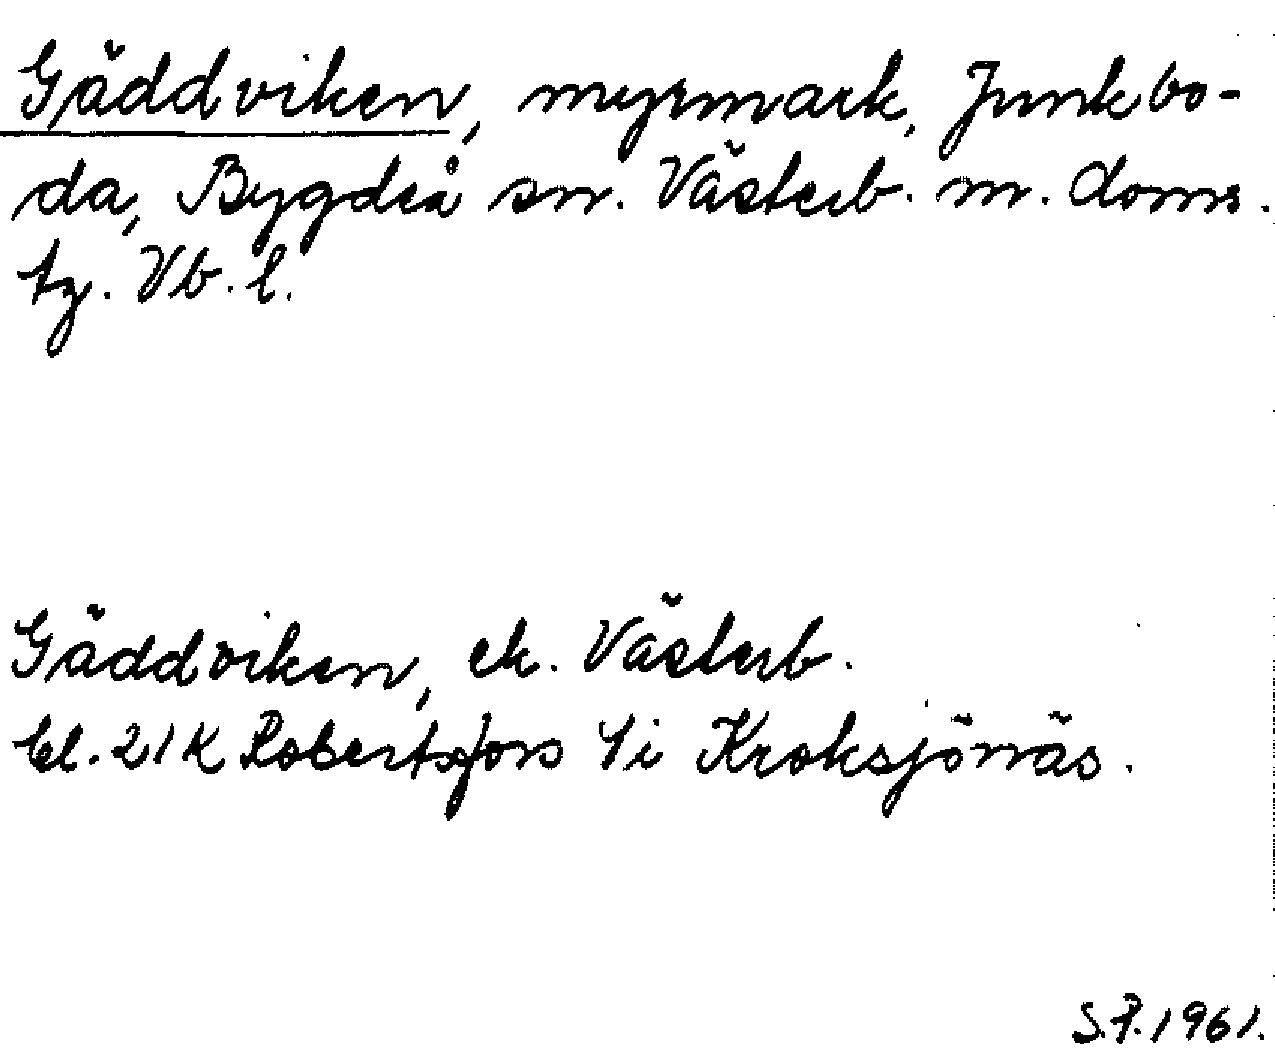 Gäddviken, myrmark, Junkbo-
da, Bygdeå sn. Västerb. m. doms.
tg. Vb. l.
Gäddviken, ek. Västerb.
bl. 21K Robertsfors 4i Kroksjönäs.
S.P. 1961.